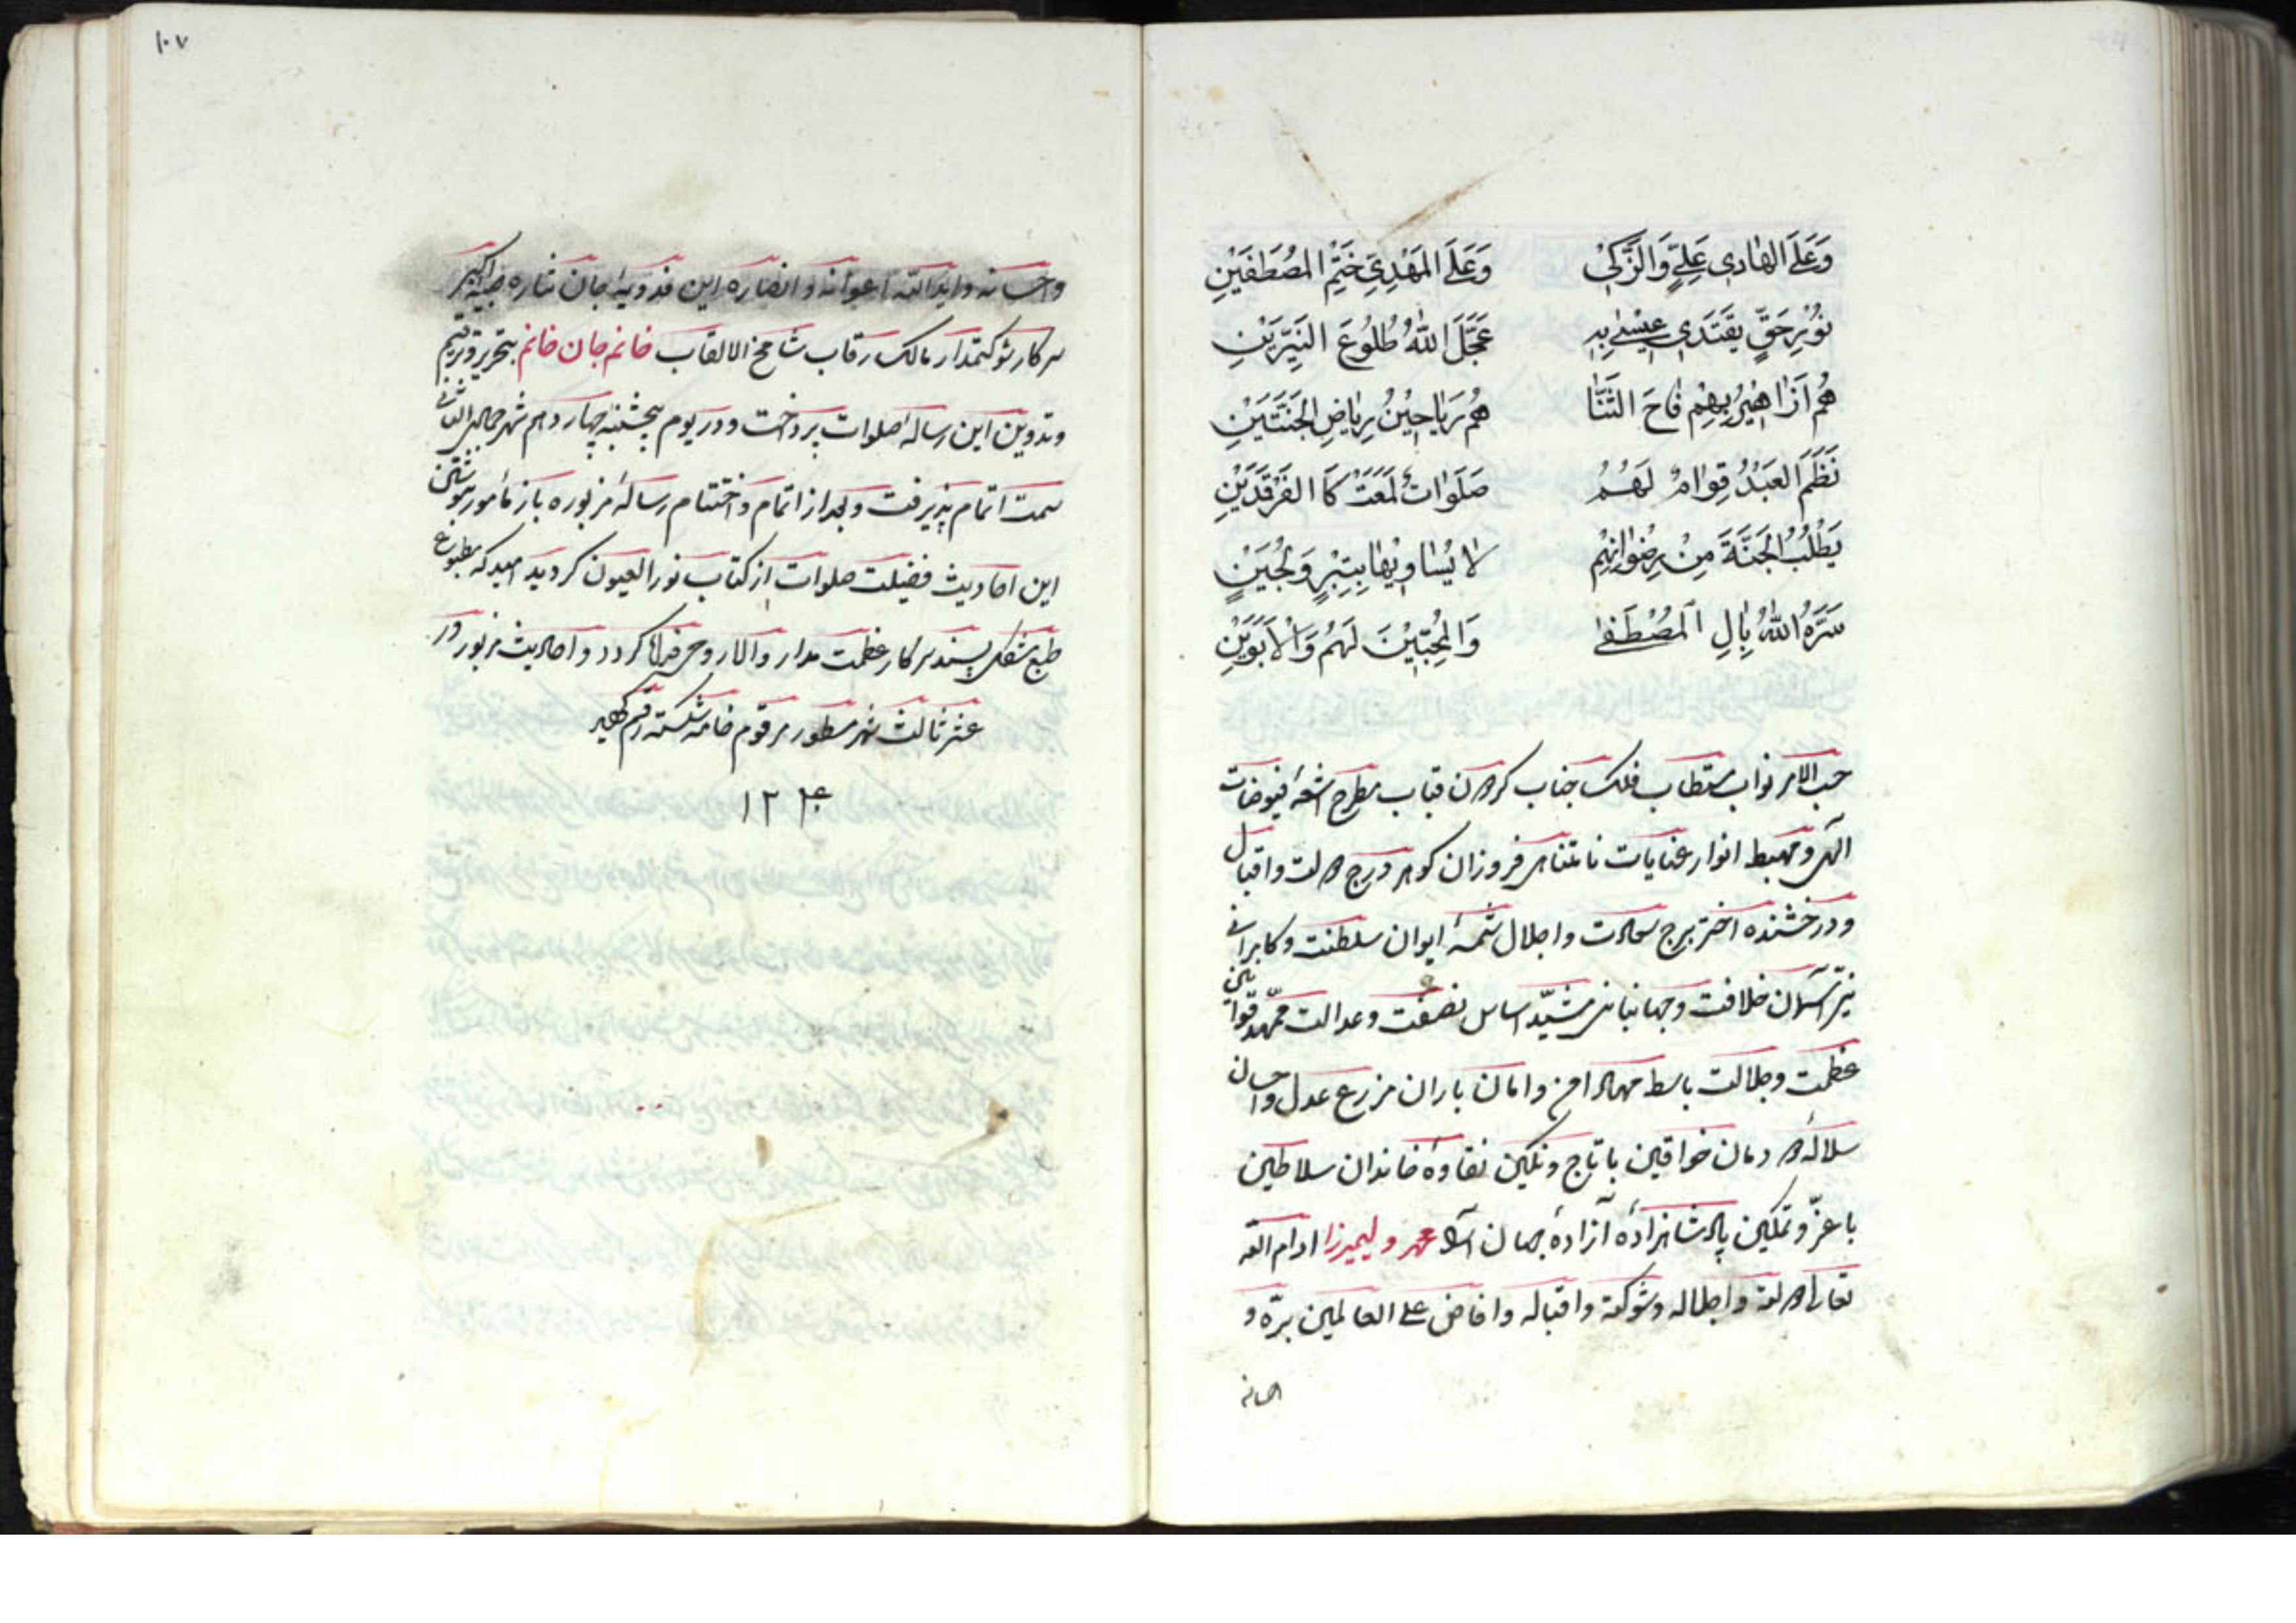 وَعَلَى الهٰادی عَلِیٍّ وَالزَّکِیْ وَعَلَى المَهْدِيِّ خَتْمِ المُصْطَفَیْنِ
نُوْرِ حَقٍّ یَقْتَدَی عِیْسٰی بِهِ عَجَّلَ اللّٰهُ طُلُوْعَ النَّیِّرَیْنِ
هُم اَزٰاهِیْرُ بِهِمْ فٰاحَ الثَّنٰا هُم رَیٰاحِیْنُ رِیٰاضِ الجَنَّتَیْنِ
نَظَمَ العَبْدُ قِوٰامٌ لَهُمُ صَلَوٰاتٌ لَمَعَتْ کَا الفَرْقَدَیْنِ
یَطْلُبُ الجَنَّةَ مِنْ رِضْوٰانِهِم لٰا یُسٰاوِیْهٰا بِتِبْرٍ وَلُجَیْنٍ
سَرَّهُ اللّٰهُ بِاٰلِ المُصْطَفٰی وَالمُحِبِّیْنَ لَهُم وَالْاَبَوَیْنِ
حسب الامر نواب مستطاب فلک جناب کردون قباب مطرح اشعهٔ فیوضات
الهی و مهبط انوار عنایات نامتناهی فروزان کوهر درج دولت و اقبال
و درخشنده اختر برج سعادت و اجلال شمسهٔ ایوان سلطنت و کامرانی
نیّر آسمان خلافت و جهانبانی مشیّد اساس نصفت و عدالت ممهّد قوانین
عظمت و جلالت باسط مهاد امن و امان باران مزرع عدل و احسان
سلالهٔ دودمان خواقین با تاج و نکین نقاوهٔ خاندان سلاطین
با عزّ و تمکین پادشاهزادهٔ آزادهٔ جهان آسا محمد ولیمیرزا ادام الله
تعالی دولته و اجلاله و شوکته و اقباله و افاض علی العالمین برّه و
احسانه
١٠٧
واحسانه و ایدالله اعوانه و انصاره این فدویه جان نثاره صبیه اکبر
سرکار شوکتمدار مالک رقاب شامخ الالقاب خانم جان خانم بتحریر و ترقیم
و تدوین این رسالهٔ صلوات پرداخت و در یوم پنجشنبه چهاردهم شهر جمادی الثانی
سمت اتمام پذیرفت و بعد از اتمام و اختتام رسالهٔ مزبوره باز مأمور بنوشتن
این احادیث فضیلت صلوات از کتاب نورالعیون کردید امید که مطبوع
طبع مشکل پسند سرکار عظمت مدار والا روحی فداه کردد و احادیث مزبور در
عشر ثالث شهر مسطور مرقوم خامه شکسته رقم کمینه
١٢٢۴